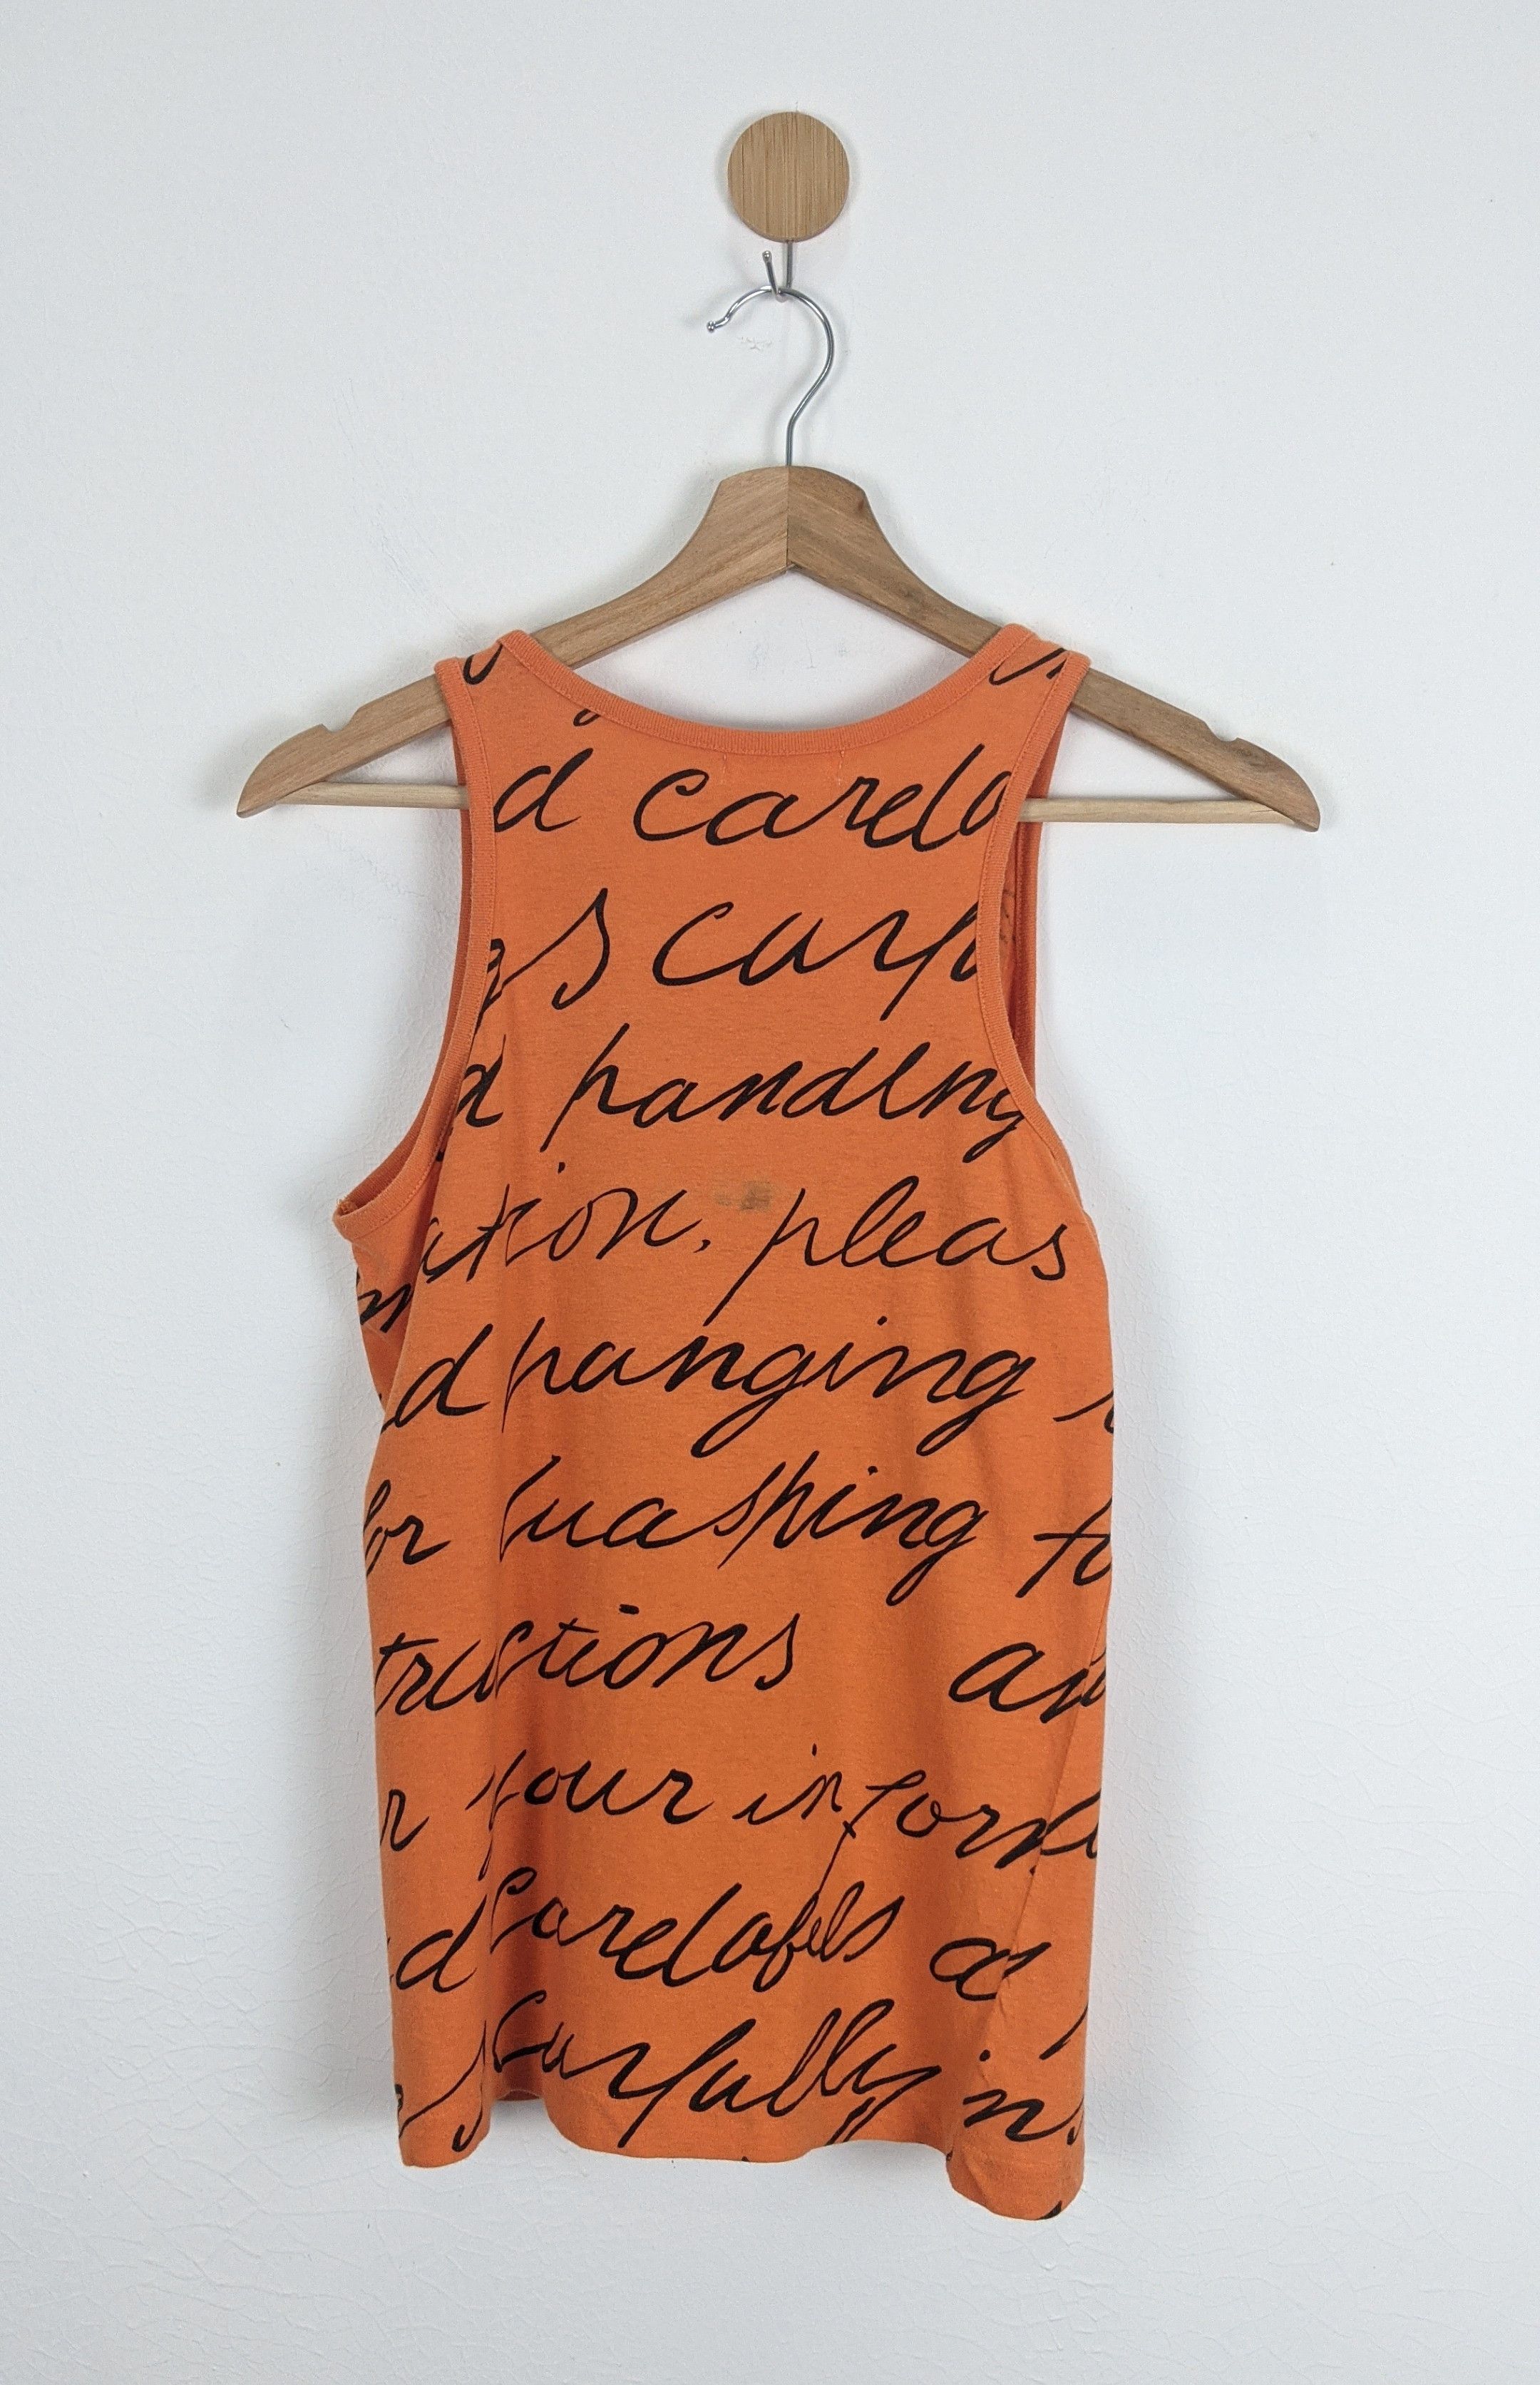 d carela
gs carf
d handlng
ation, pleas
d hanging
for washing to
tructions an
r your inform
d carelabels a
s carfully ins